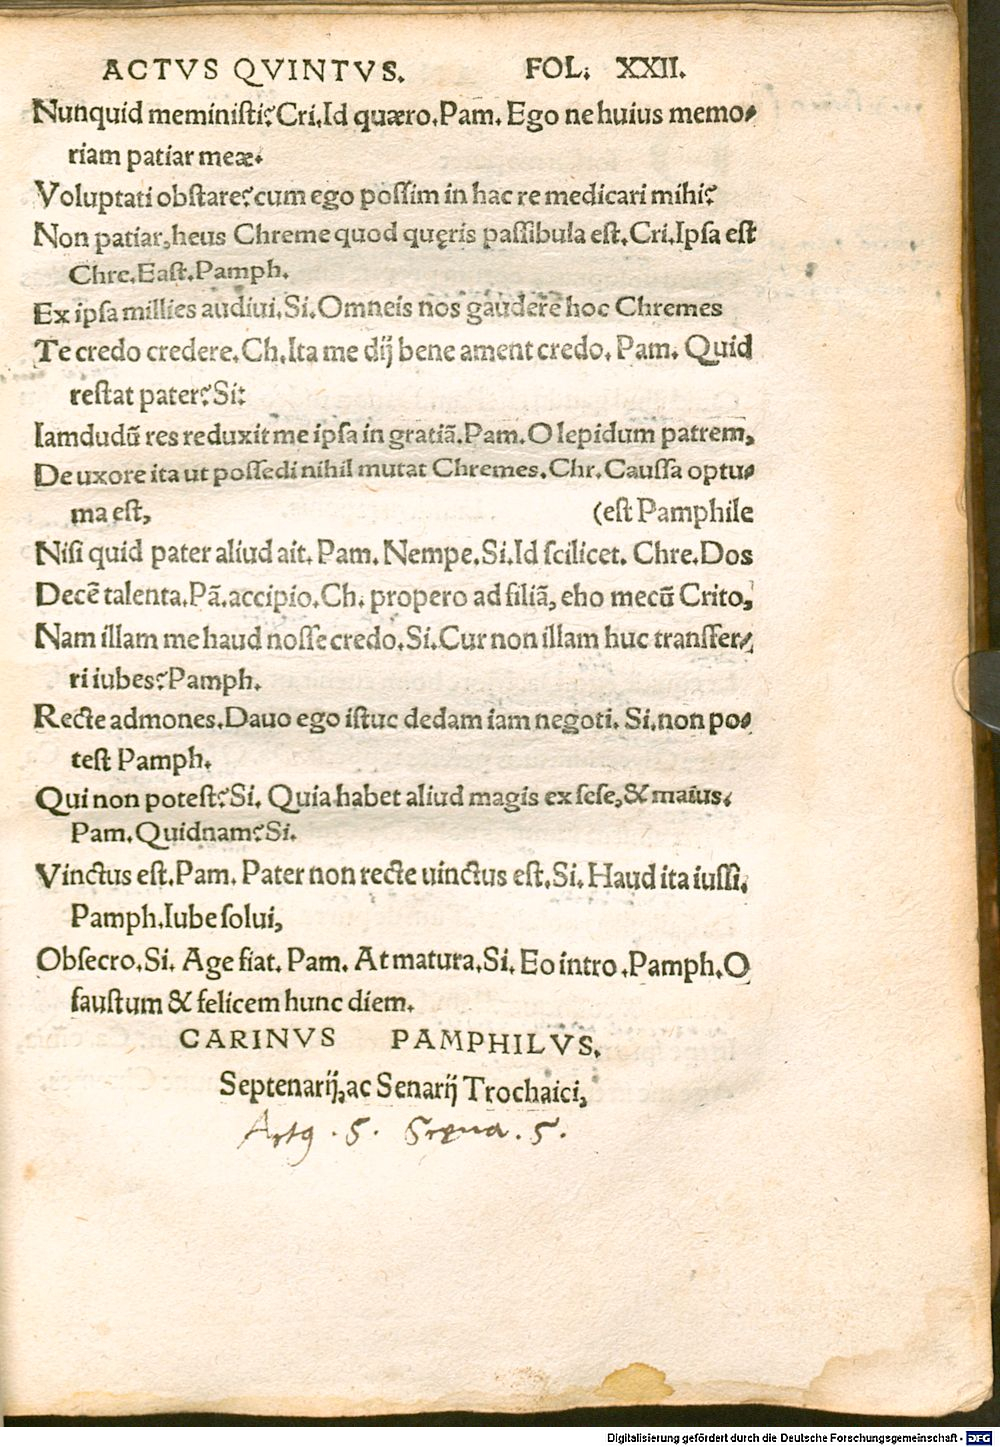 ACTVS QVINTVS. FOL. XXII.
Nunquid meministi? Cri. Id quæro. Pam. Ego ne huius memo-
riam patiar meæ.
Voluptati obstare? cum ego possim in hac re medicari mihi?
Non patiar, heus Chreme quod quęris passibula est. Cri. Ipsa est
Chre. East. Pamph.
Ex ipsa millies audiui. Si. Omneis nos gaudere hoc Chremes
Te credo credere. Ch. Ita me dij bene ament credo. Pam. Quid
restat pater? Si:
Iamdudū res reduxit me ipsa in gratiā. Pam. O lepidum patrem,
De uxore ita ut possedi nihil mutat Chremes. Chr. Caussa optu-
ma est, (est Pamphile
Nisi quid pater aliud ait. Pam. Nempe. Si. Id scilicet. Chre. Dos
Decē talenta. Pā. accipio. Ch. propero ad filiā, eho mecū Crito,
Nam illam me haud nosse credo. Si. Cur non illam huc transfer-
ri iubes? Pamph.
Recte admones. Dauo ego istuc dedam iam negoti. Si. non po-
test Pamph.
Qui non potest? Si. Quia habet aliud magis ex sese, & maius.
Pam. Quidnam? Si.
Vinctus est. Pam. Pater non recte uinctus est. Si. Haud ita iussi.
Pamph. Iube solui,
Obsecro. Si. Age fiat. Pam. At matura. Si. Eo intro. Pamph. O
faustum & felicem hunc diem.
CARINVS PAMPHILVS.
Septenarij, ac Senarij Trochaici,
Actꝰ . 5. Scęna . 5.
Digitalisierung gefördert durch die Deutsche Forschungsgemeinschaft - DFG